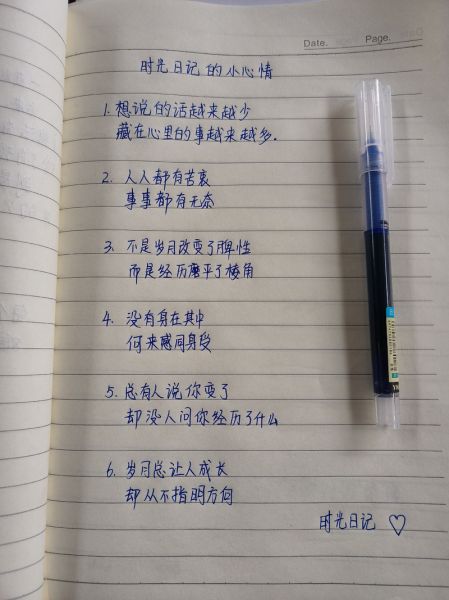 Date. Page.
时光日记的小心情
1. 想说的话越来越少
藏在心里的事越来越多.
2. 人人都有苦衷
事事都有无奈
3. 不是岁月改变了脾性
而是经历磨平了棱角
4. 没有身在其中
何来感同身受
5. 总有人说你变了
却没人问你经历了什么
6. 岁月总让人成长
却从不指明方向
时光日记 ♡